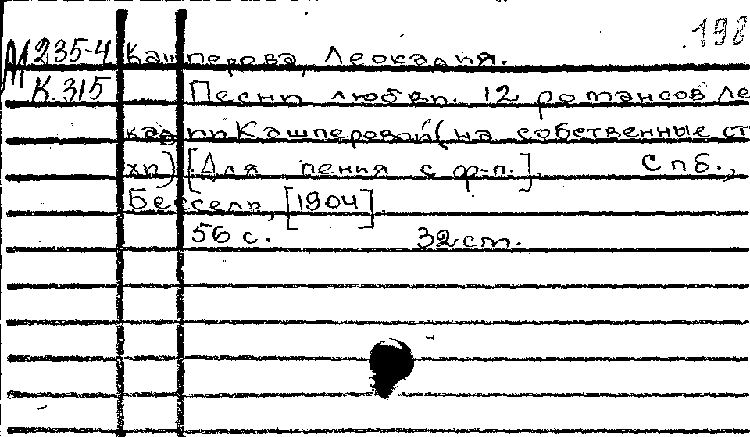 198
М 235-4 Кашперова, Леокадия.
К.315 Песни любви. 12 романсов Ле
кадии Кашперовой (на собственные ст
хи) [Для пения с ф-п.] Спб.,
Бессель, [1904]
56 с. 32 см.